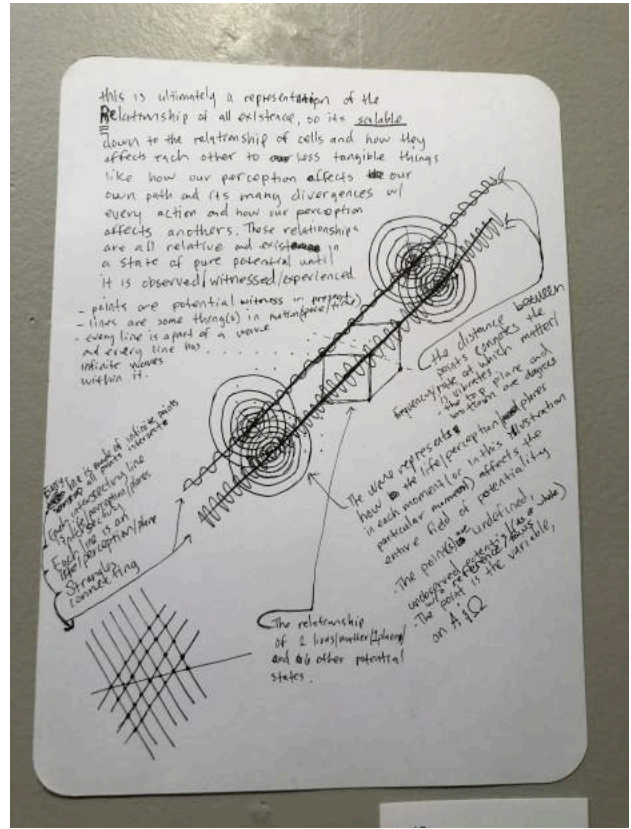 this is ultimately a representation of the
Relationship of all existence, so its scalable
down to the relationship of cells and how they
affects each other to less tangible things
like how our perception affects our
own path and its many divergences w/
every action and how our perception
affects anothers. These relationships
are all relative and exist in
a state of pure potential until
it is observed/witnessed/experienced
- points are potential witness in present
- lines are some thing(s) in motion
- every line is apart of a wave
and every line has
infinite waves
within it.
the distance between
points conotes the
frequency/rate at which matter/
is vibrated
the top plane and
bottom are degrees
The wave represents
how the life/perception/planes
in each moment (or in this illustration
particular moment) affects the
entire field of potentiality
- The point is undefined,
undeserved potential (as a whole)
w/o reference
- The point is the variable,
on A & Ω
line is made of infinite points
all points intersects
Each intersecting line
is life/perception/planes
intersecting
Each line is an
life/perception/plane
Strands
connecting
The relationship
of 2 lives/matter/
and 6 other potential
states.